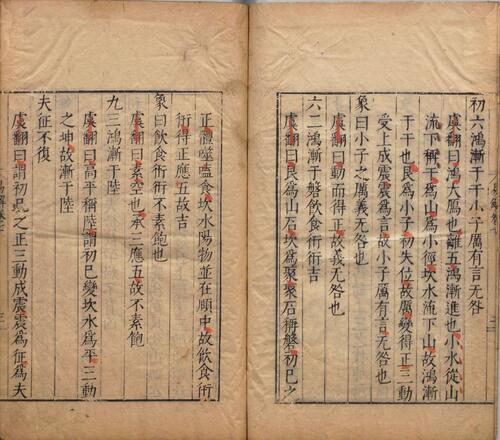 初六鴻漸于干小子厲有言无咎
虞翻曰鴻大鴈也離五鴻漸進也小水從山
流下稱干艮爲山爲小徑坎水流下山故鴻漸
于干也艮爲小子初失位故厲變得正三動
受上成震震爲言故小子厲有言无咎也
象曰小子之厲義无咎也
虞翻曰動而得正故義无咎也
六二鴻漸于磐飲食衎衎吉
虞翻曰艮爲山石坎爲聚聚石稱磐初已之
正體噬嗑食坎水陽物並在頤中故飲食衎
衎得正應五故吉
象曰飲食衎衎不素飽也
虞翻曰素空也承三應五故不素飽
九三鴻漸于陸
虞翻曰高平稱陸謂初已變坎水爲平三動
之坤故漸于陸
夫征不復
虞翻曰謂初已之正三動成震震爲征爲夫